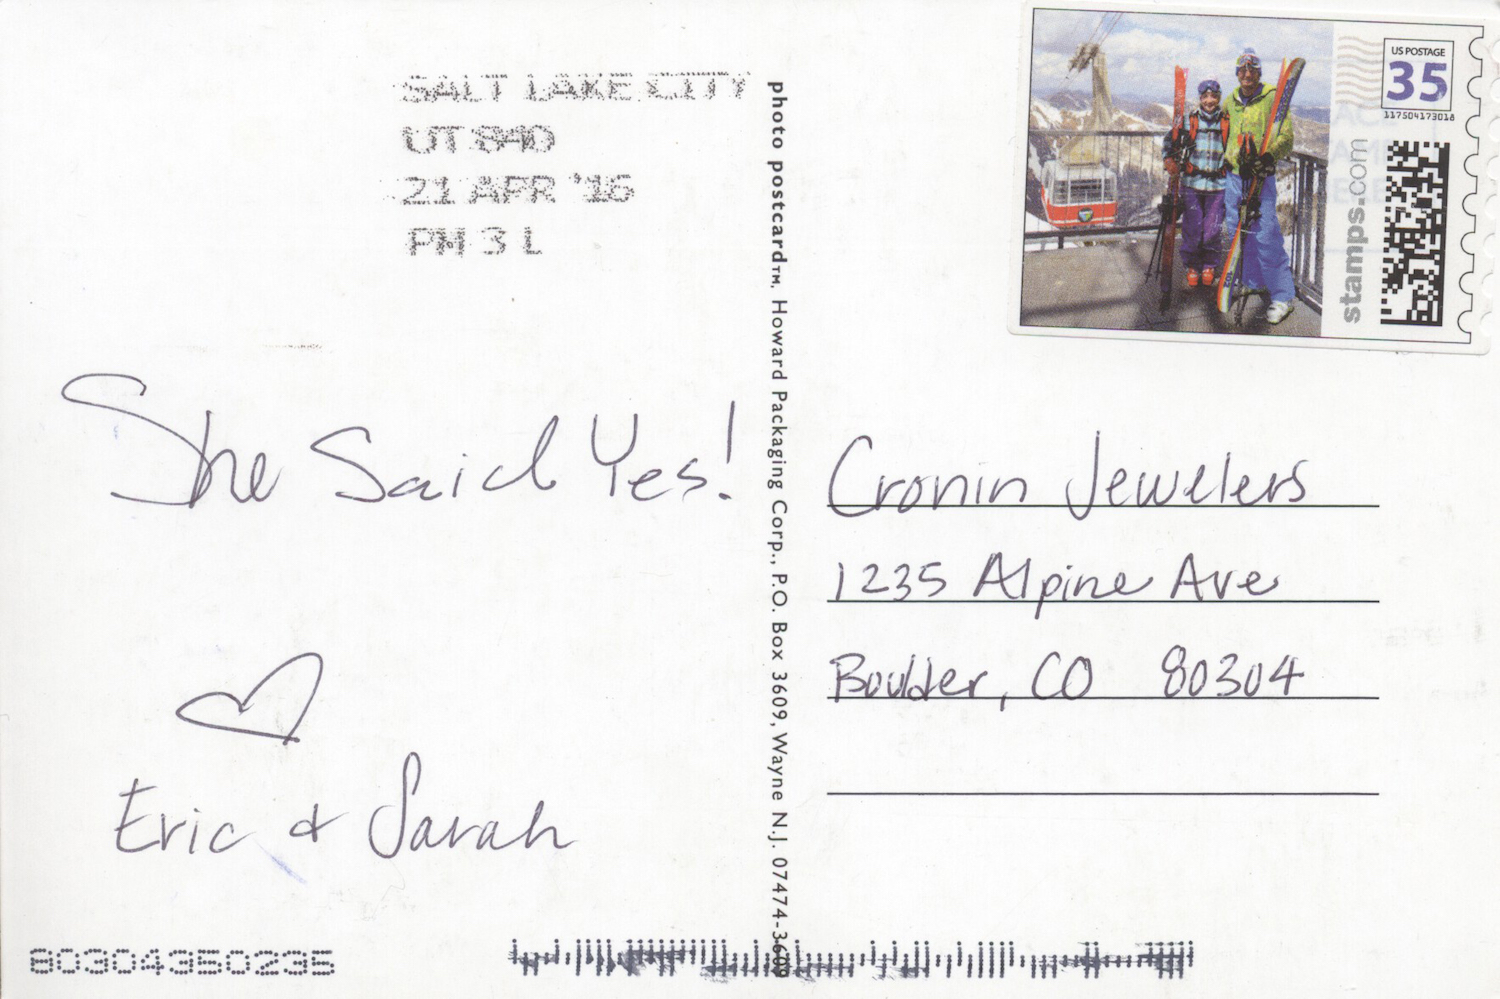 SALT LAKE CITY
UT 840
21 APR '16
PM 3 L
She Said Yes!
Eric & Sarah
photo postcard™. Howard Packaging Corp., P.O. Box 3609, Wayne N.J. 07474-3609
US POSTAGE
35
117504173018
stamps.com
Cronin Jewelers
1235 Alpine Ave
Boulder, CO 80304
80304350235